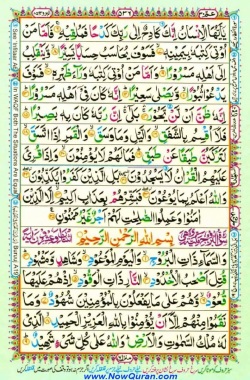 عم ۳۰
۵۳۶
يٰٓاَيُّهَا الْاِنْسَانُ اِنَّكَ كَادِحٌ اِلٰى رَبِّكَ كَدْحًا فَمُلٰقِيْهِ ۚ فَاَمَّا مَنْ اُوْتِيَ
كِتٰبَهٗ بِيَمِيْنِهٖ ۙ فَسَوْفَ يُحَاسَبُ حِسَابًا يَّسِيْرًا ۙ وَّيَنْقَلِبُ
اِلٰٓى اَهْلِهٖ مَسْرُوْرًا ؕ وَاَمَّا مَنْ اُوْتِيَ كِتٰبَهٗ وَرَآءَ ظَهْرِهٖ ۙ فَسَوْفَ
يَدْعُوْا ثُبُوْرًا ۙ وَّيَصْلٰى سَعِيْرًا ؕ اِنَّهٗ كَانَ فِيْٓ اَهْلِهٖ مَسْرُوْرًا ؕ
اِنَّهٗ ظَنَّ اَنْ لَّنْ يَّحُوْرَ ۚ بَلٰٓى ۚ اِنَّ رَبَّهٗ كَانَ بِهٖ بَصِيْرًا ؕ
فَلَآ اُقْسِمُ بِالشَّفَقِ ۙ وَالَّيْلِ وَمَا وَسَقَ ۙ وَالْقَمَرِ اِذَا اتَّسَقَ ۙ
لَتَرْكَبُنَّ طَبَقًا عَنْ طَبَقٍ ؕ فَمَا لَهُمْ لَا يُؤْمِنُوْنَ ۙ وَاِذَا قُرِئَ
عَلَيْهِمُ الْقُرْاٰنُ لَا يَسْجُدُوْنَ ؕ بَلِ الَّذِيْنَ كَفَرُوْا يُكَذِّبُوْنَ ۖ
وَاللّٰهُ اَعْلَمُ بِمَا يُوْعُوْنَ ۖ فَبَشِّرْهُمْ بِعَذَابٍ اَلِيْمٍ ۙ اِلَّا الَّذِيْنَ
اٰمَنُوْا وَعَمِلُوا الصّٰلِحٰتِ لَهُمْ اَجْرٌ غَيْرُ مَمْنُوْنٍ
بِسْمِ اللّٰهِ الرَّحْمٰنِ الرَّحِيْمِ
وَالسَّمَآءِ ذَاتِ الْبُرُوْجِ ۙ وَالْيَوْمِ الْمَوْعُوْدِ ۙ وَشَاهِدٍ وَّمَشْهُوْدٍ ؕ
قُتِلَ اَصْحٰبُ الْاُخْدُوْدِ ۙ النَّارِ ذَاتِ الْوَقُوْدِ ۙ اِذْ هُمْ عَلَيْهَا
قُعُوْدٌ ۙ وَّهُمْ عَلٰى مَا يَفْعَلُوْنَ بِالْمُؤْمِنِيْنَ شُهُوْدٌ ؕ وَمَا
نَقَمُوْا مِنْهُمْ اِلَّآ اَنْ يُّؤْمِنُوْا بِاللّٰهِ الْعَزِيْزِ الْحَمِيْدِ ۙ الَّذِيْ
لَهٗ مُلْكُ السَّمٰوٰتِ وَالْاَرْضِ ؕ وَاللّٰهُ عَلٰى كُلِّ شَيْءٍ شَهِيْدٌ
www.NowQuran.com